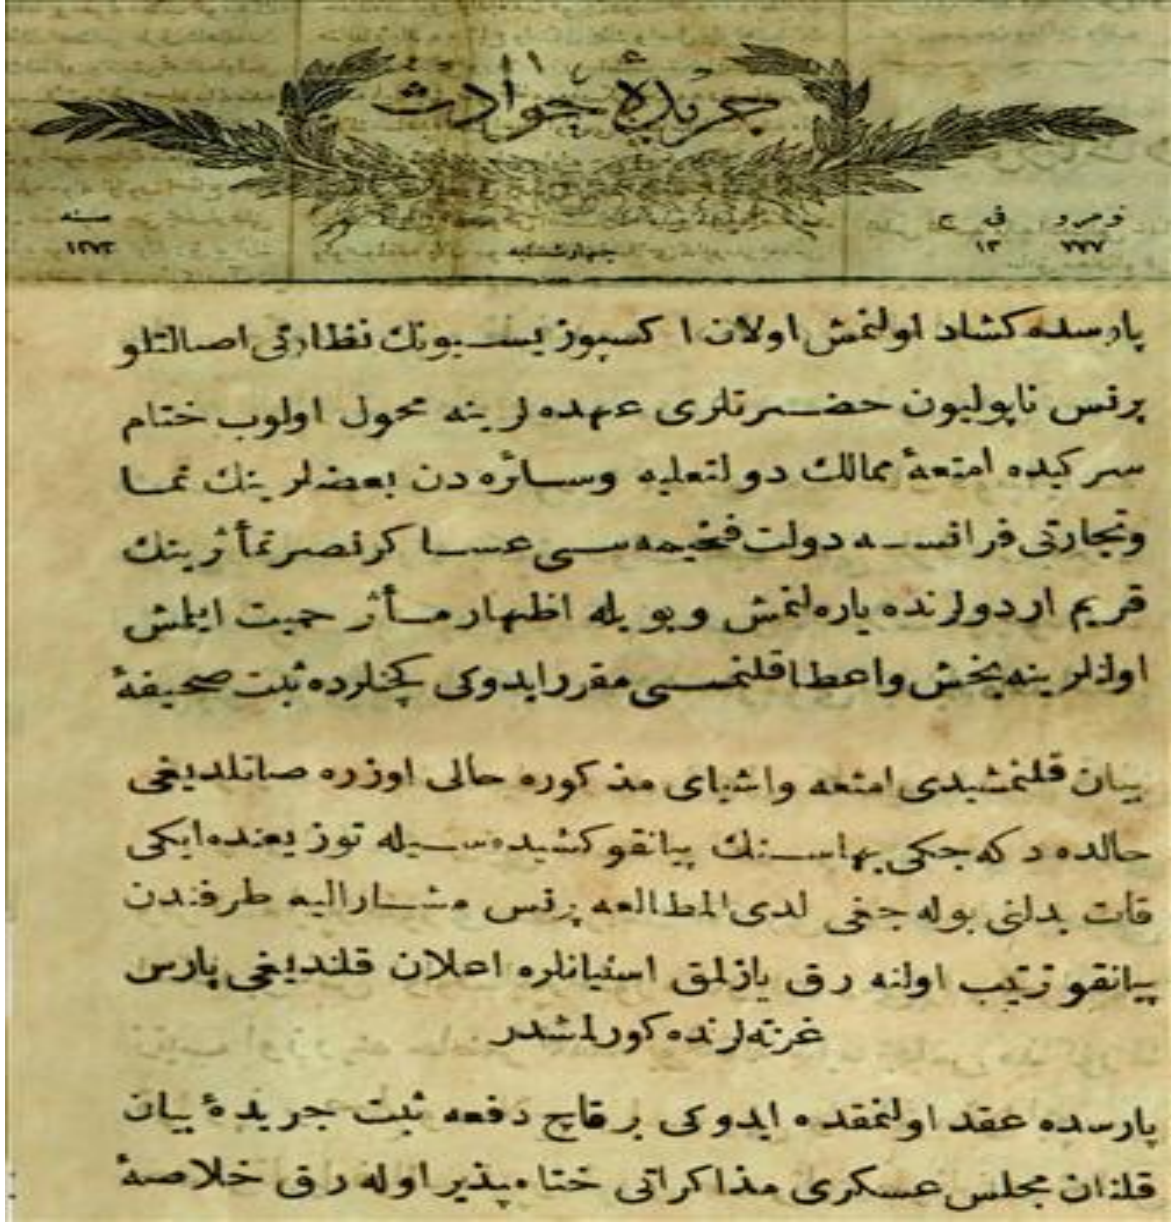 جريدۀ حوادث
نومرو فى ج سنه
٧٧٧ ١٣ ١٢٧٢
چهارشنبه
پارسده كشاد اولنمش اولان ا كسپوزيسيونك نظارتى اصالتلو
پرنس ناپوليون حضرتلرى عهده لرينه محول اولوب ختام
سركيده امتعۀ ممالك دولتعليه وسائره دن بعضه لرينك
وتجارتى فرانسه دولت فخيمه سى عساكر نصرتمأثرينك
قريم اردولرنده ياره لنمش وبويله اظهار مأثر حميت ايلمش
اولنلرينه بخش واعطا قلنمسى مقرر ايدوكى كچنلرده ثبت صحيفۀ
بيان قلنمشيدى امتعه واشياى مذكوره حالى اوزره صاتلديغى
حالده دكه جكى بهاسنك پيانقو كشيده سيله توزيعنده ايكى
قات بدلنى بوله جغى لدى المطالعه پرنس مشاراليه طرفندن
پيانقو ترتيب اولنه رق يازلمق استيانلره اعلان قلنديغى پارس
غزته لرنده كورلمشدر
پارسده عقد اولنمقده ايدوكى برقاچ دفعه ثبت جريدۀ بيان
قلنان مجلس عسكرى مذاكراتى ختامپذير اوله رق خلاصۀ